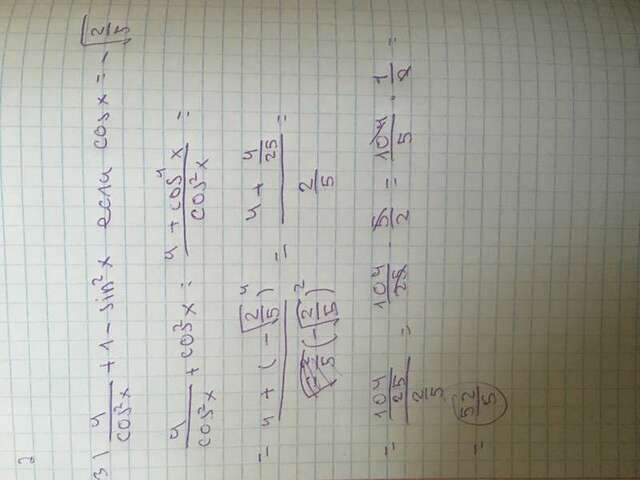 2
3) 4/cos²x + 1 - sin²x если cos x = -√(2/5)
4/cos²x + cos²x = (4 + cos⁴x)/cos²x =
= (4 + (-√(2/5))⁴)/(-√(2/5))² = (4 + 4/25)/(2/5) =
= (104/25)/(2/5) = 104/25 · 5/2 = 104/5 · 1/2 =
= 52/5